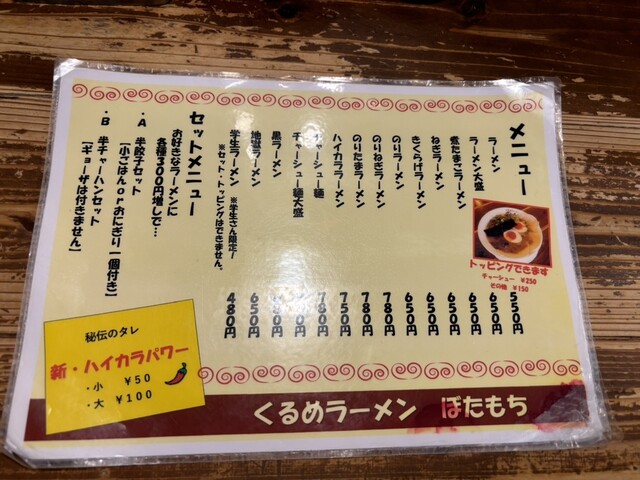 メニュー
ラーメン 550円
ラーメン大盛 650円
煮たまごラーメン 650円
ねぎラーメン 650円
きくらげラーメン 650円
のりラーメン 650円
のりねぎラーメン 780円
のりたまラーメン 780円
ハイカララーメン 750円
チャーシュー麺 780円
チャーシュー麺大盛
黒ラーメン
地獄ラーメン 650円
学生ラーメン ※学生さん限定！ 480円
※セット・トッピングはできません。
トッピングできます
チャーシュー ¥250
その他 ¥150
セットメニュー
お好きなラーメンに
各種300円増しで…
・A 半餃子セット
[小ごはんorおにぎり一個付き]
・B 半チャーハンセット
[ギョーザは付きません]
秘伝のタレ
新・ハイカラパワー
・小 ¥50
・大 ¥100
くるめラーメン ぼたもち